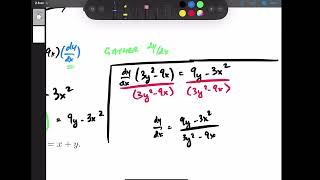 9x)(dy/dx) GATHER dy/dx
dy/dx (3y² - 9x) = 9y - 3x²
(3y² - 9x) (3y² - 9x)
- 3x²
) = 9y - 3x²
dy/dx = 9y - 3x² / 3y² - 9x
= x + y.